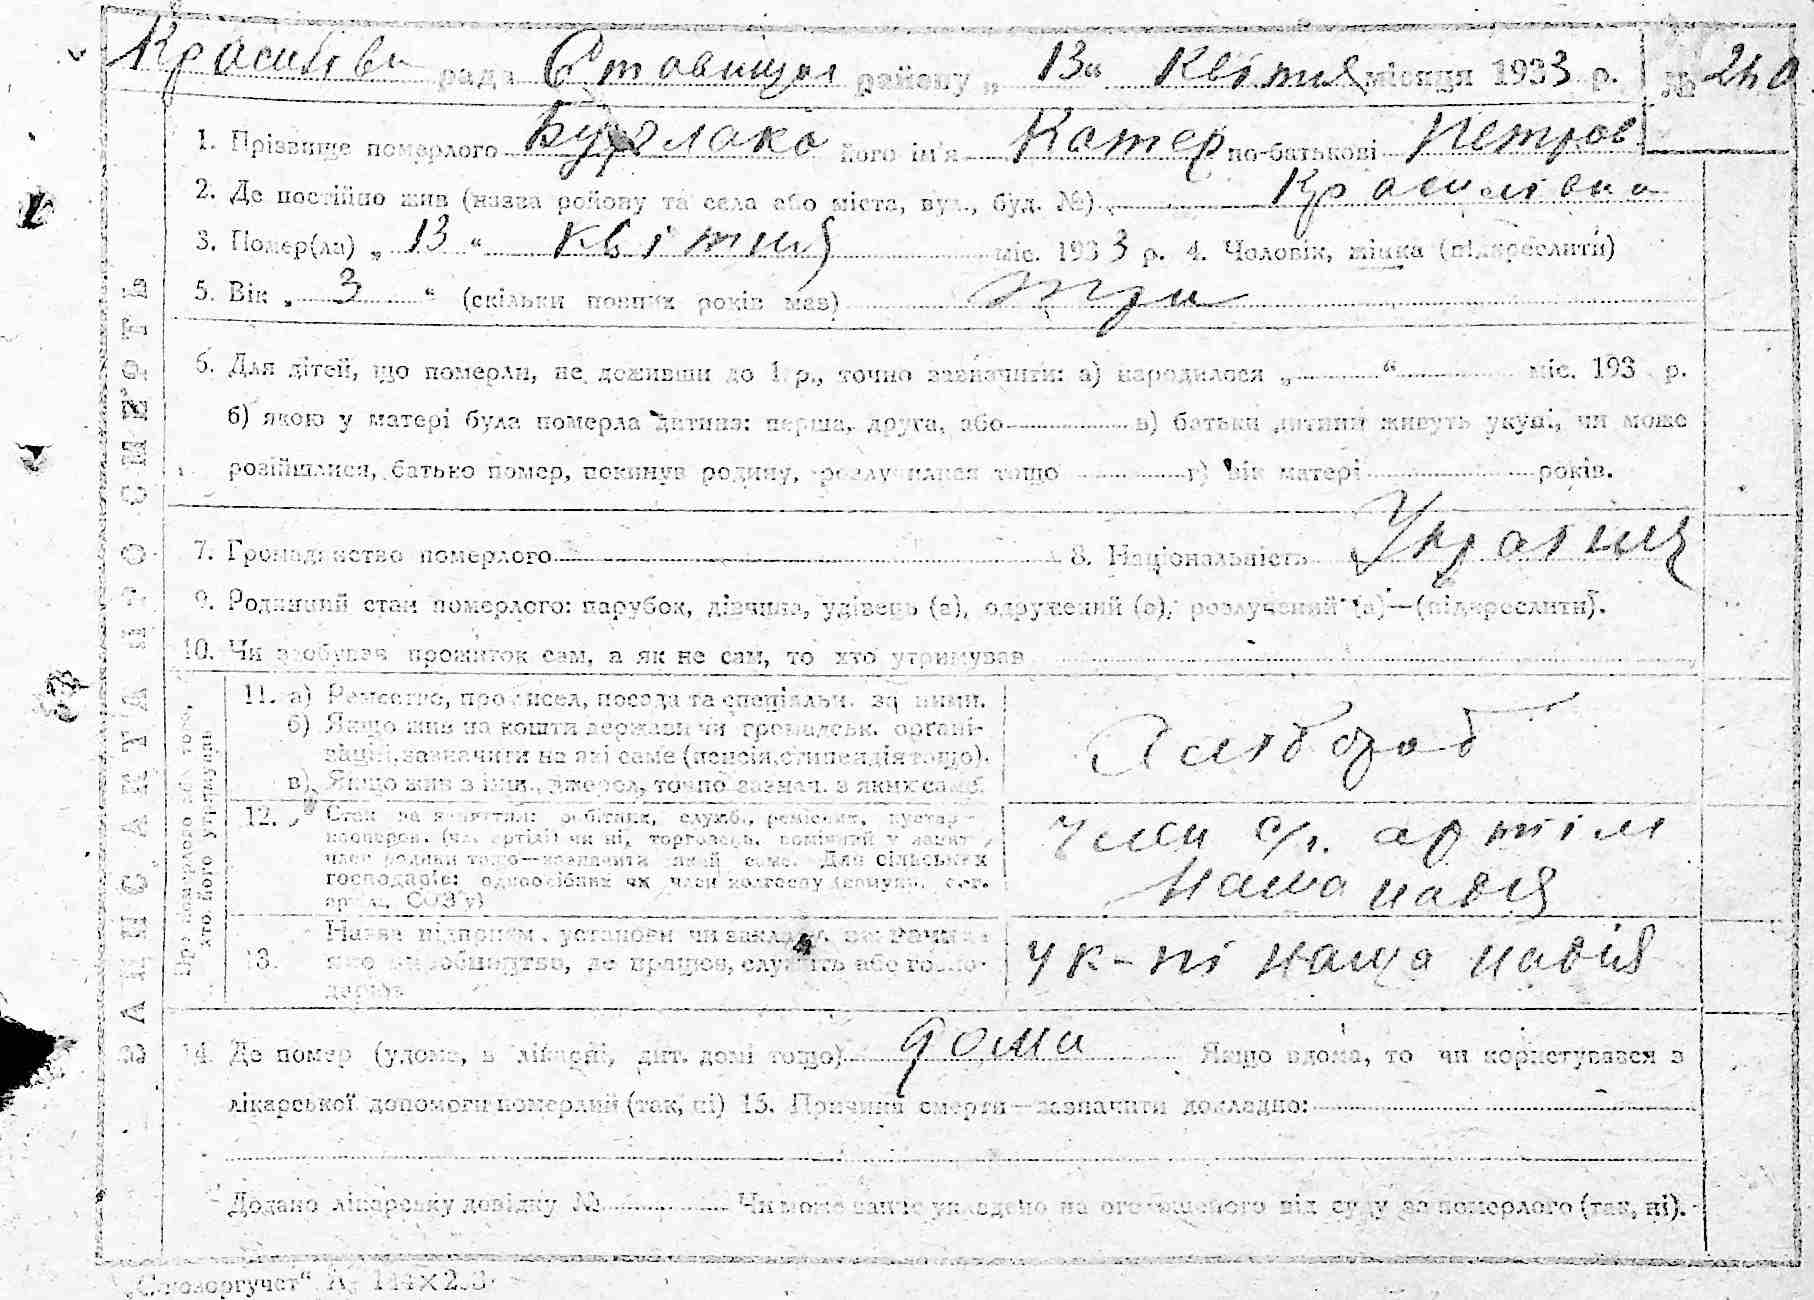 Красилівка рада Ставищан району „13“ Квітня місяця 1933 р. № 240
1. Прізвище померлого Бурлака його ім'я Катер по-батькові Петров
2. Де постійно жив (назва району та села або міста, вул., буд. №) Красилівка
3. Помер(ла) „13“ квітня міс. 1933 р. 4. Чоловік, жінка (підкреслити)
5. Вік „3“ (скільки повних років мав) три
6. Для дітей, що померли, не доживши до 1 р., точно зазначити: а) народилося „ “ міс. 193 р.
б) якою у матері була померла дитина: перша, друга, або в) батьки дитини живуть укупі, чи може
розійшлися, батько помер, покинув родину, розлучилися тощо г) вік матері років.
7. Громадянство померлого 8. Національність Україниця
9. Родинний стан померлого: парубок, дівчина, удівець (а), одружений (а), розлучений (а)—(підкреслити).
10. Чи здобував прожиток сам, а як не сам, то хто утримував
ЗАПИС АКТУ ПРО СМЕРТЬ
Про померлого або того, хто його утримував
11. а) Ремество, промисел, посада та спеціальн. за ними.
б) Якщо жив на кошти держави чи громадськ. органі-
зації, зазначити на які саме (пенсія, стипендія тощо).
в) Якщо жив з інш. джерел, точно зазнач. з яких саме.
Хлібороб
12. Стан на занятті: робітник, служб., ремісник, кустар-
член родини тощо—зазначити який саме. Для сільських
господарів: одноосібник чи член колгоспу (комуни, с.-г.
артіл., СОЗ'у)
Член с/г. артіл
Наша надія
13. Назва підприєм. установи чи закладу,
яке виробництво, де працює, служить або госпо-
дарює
У к-пі Наша надія
14. Де помер (удома, в лікарні, дит. домі тощо) дома Якщо вдома, то чи користувався з
лікарської допомоги померлий (так, ні) 15. Причини смерти—зазначити докладно:
Додано лікарську довідку № Чи може запис укладено на оголошеного від суду за померлого (так, ні).